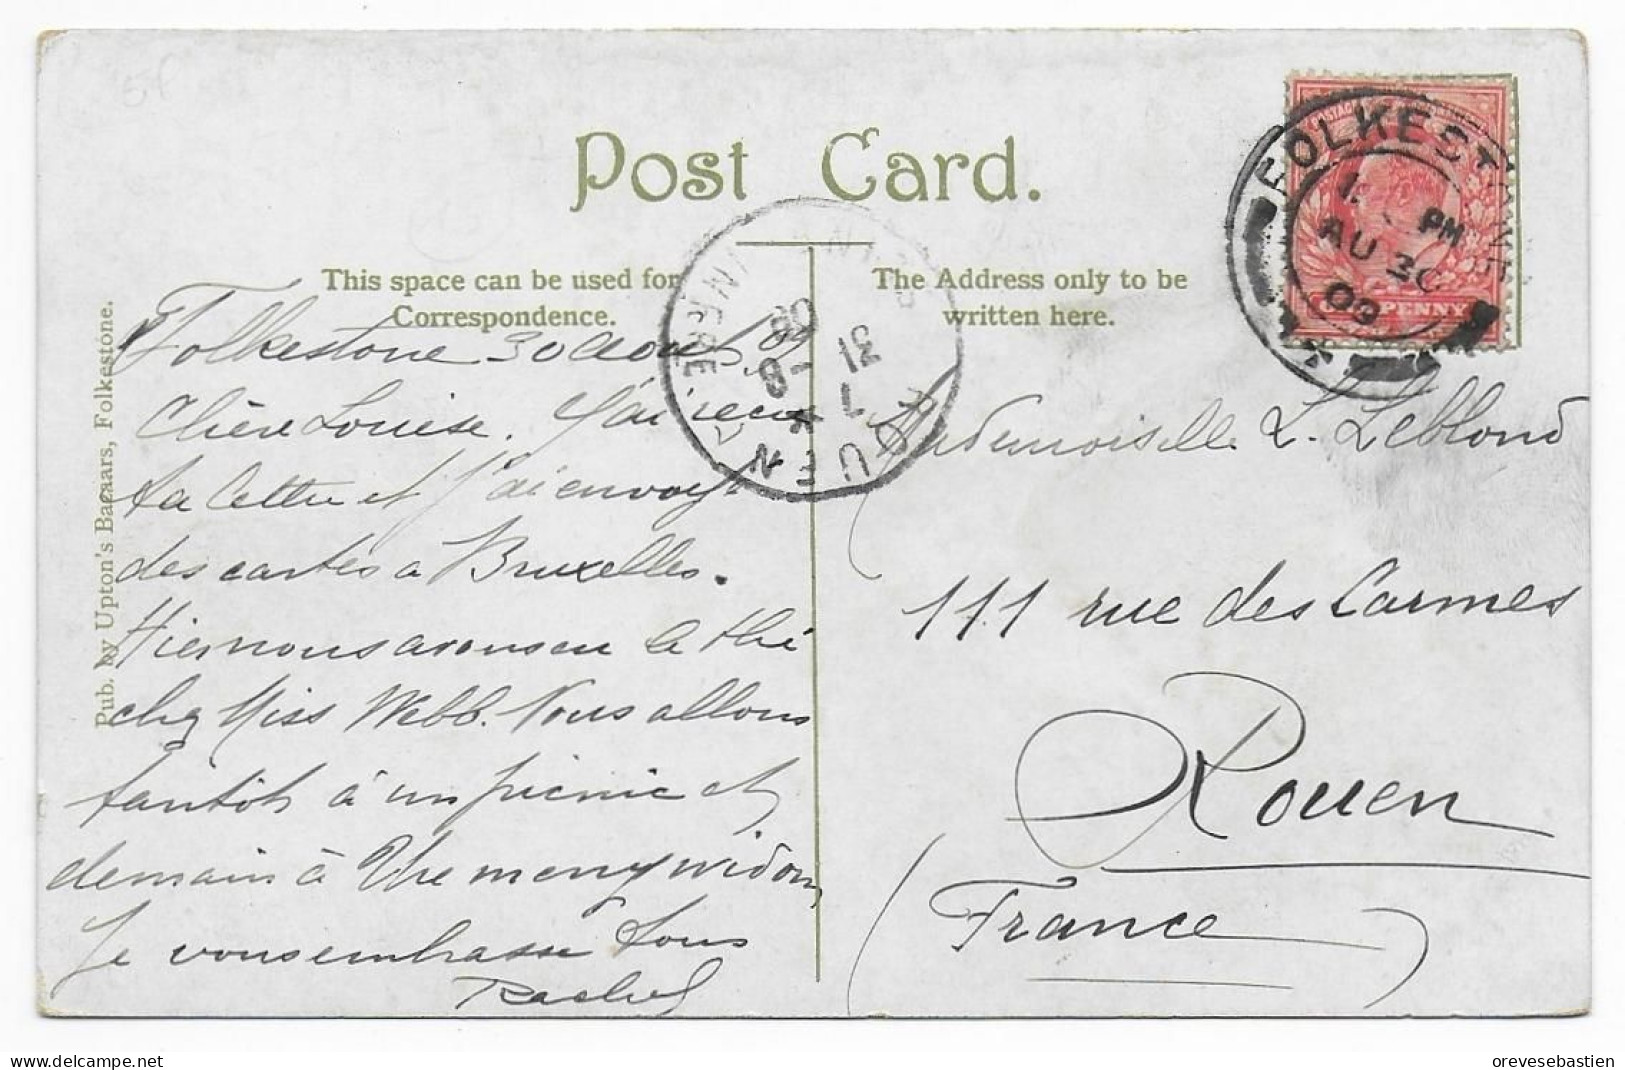 Post Card.
This space can be used for
Correspondence.
The Address only to be
written here.
Pub. by Upton's Bazaars, Folkestone.
FOLKESTONE
PM
AU 30
09
PENNY
ROUEN
Folkestone 30 Août 09
Chère Louise. J'ai reçu
ta lettre et j'ai envoyé
des cartes à Bruxelles.
Hier nous avons eu le thé
chez Miss Webb. Nous allons
tantôt à un picnic et
demain à The merry widow,
Je vous embrasse tous
Rachel
Mademoiselle L. Leblond
111 rue des Carmes
Rouen
(France)
delcampe.net
orevesebastien